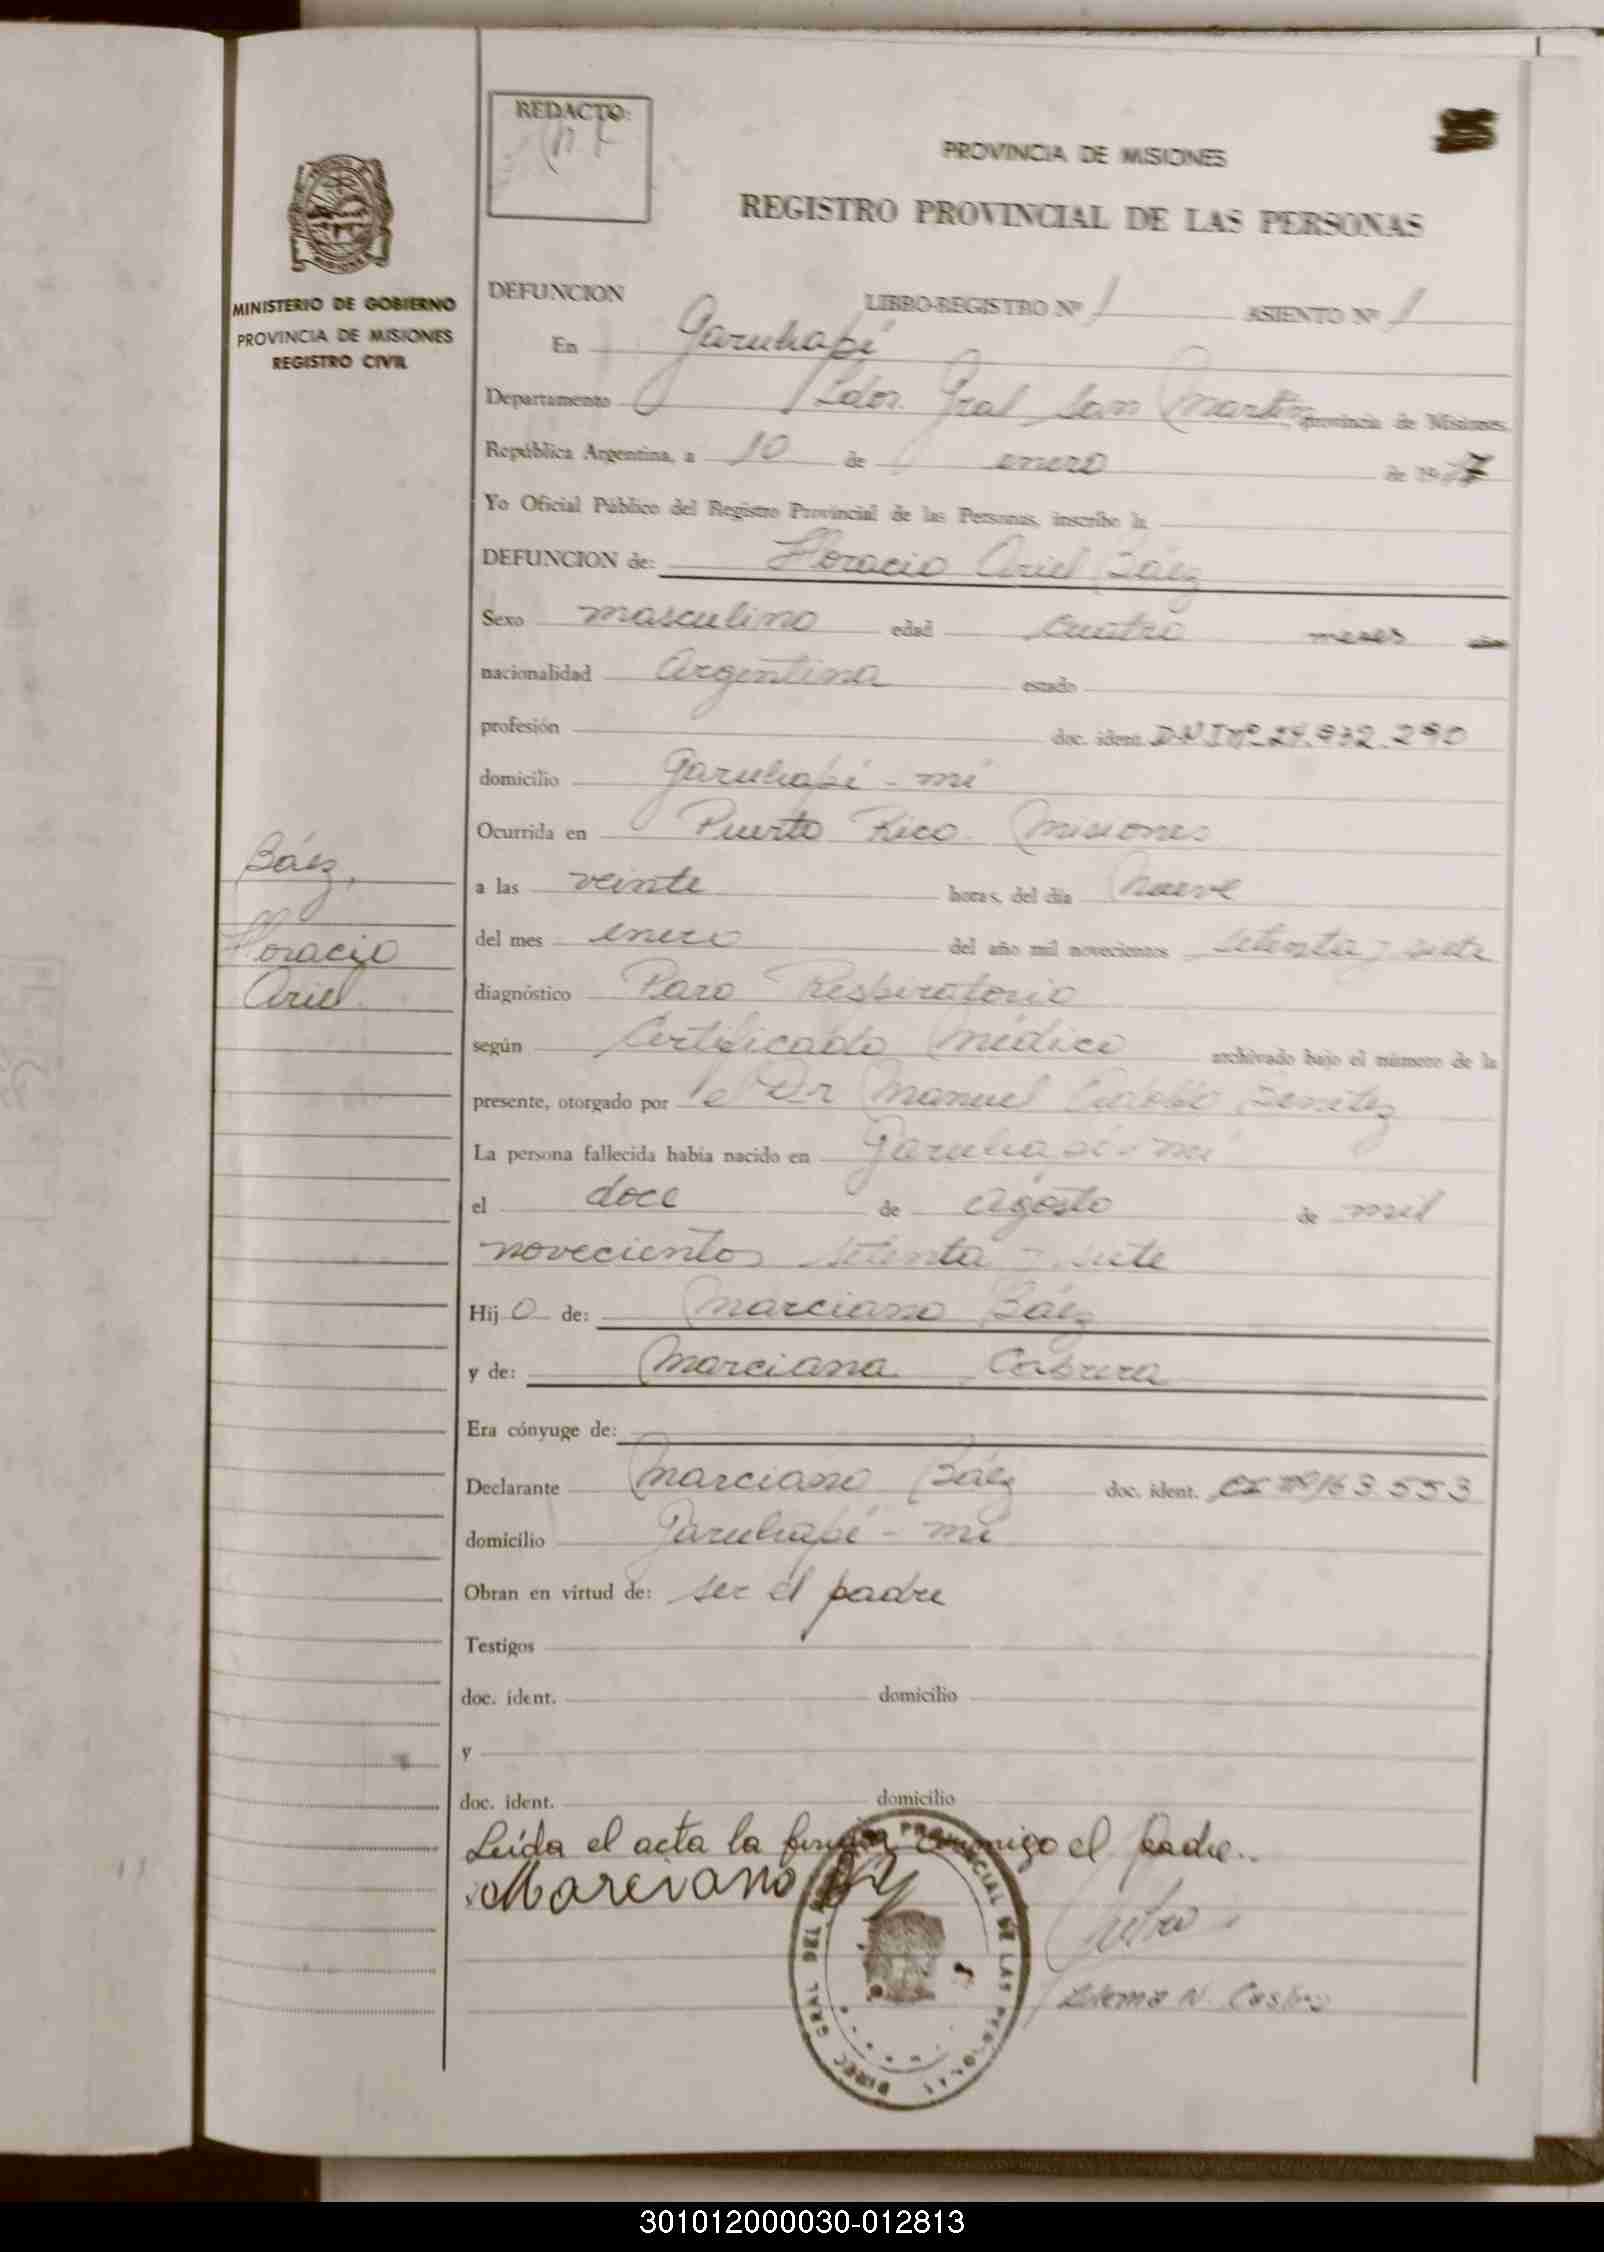 REDACTO:
PROVINCIA DE MISIONES
REGISTRO PROVINCIAL DE LAS PERSONAS
MINISTERIO DE GOBIERNO
PROVINCIA DE MISIONES
REGISTRO CIVIL
DEFUNCION LIBRO-REGISTRO Nº 1 ASIENTO Nº 1
En Garuhapé
Departamento Ldor. Gral San Martín provincia de Misiones.
República Argentina, a 10 de enero de 1977
Yo Oficial Público del Registro Provincial de las Personas, inscribo la
DEFUNCION de: Horacio Ariel Báez
Sexo masculino edad cuatro meses
nacionalidad Argentina estado
profesión doc. ident. DNI Nº 24.932.290
domicilio Garuhapé - mí
Ocurrida en Puerto Rico Misiones
a las veinte horas, del día nueve
del mes enero del año mil novecientos setenta y siete
diagnóstico Paro Respiratorio
según Certificado Médico archivado bajo el número de la
presente, otorgado por el Dr Manuel Benitez
La persona fallecida había nacido en Garuhapé - mí
el doce de agosto de mil
novecientos setenta y siete
Hijo de: Marciano Báez
y de: Marciana Cabrera
Era cónyuge de:
Declarante Marciano Báez doc. ident. CI Nº 163.553
domicilio Garuhapé - mí
Obran en virtud de: ser el padre
Testigos
doc. ident. domicilio
y
doc. ident. domicilio
Leída el acta la firma conmigo el padre.
Marciano Báez
N. Castro
Báez,
Horacio
Ariel
301012000030-012813